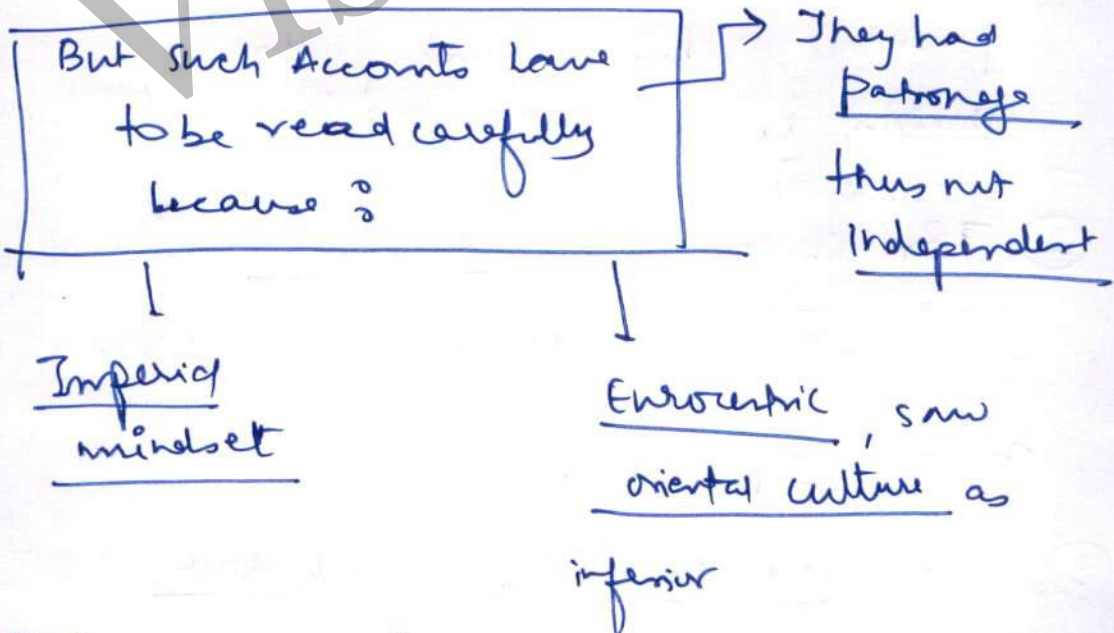 But such Accounts have
to be read carefully
because :
They had
patronage
thus not
Independent
Imperial
mindset
Eurocentric, saw
oriental culture as
inferior